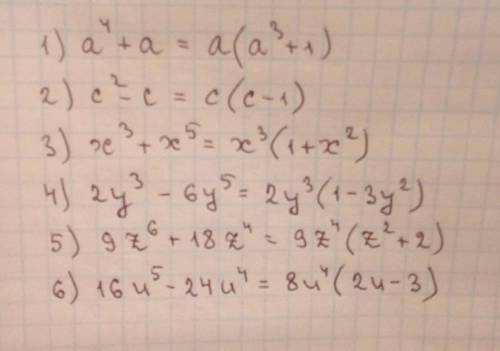 1) a⁴ + a = a(a³ + 1)
2) c² - c = c(c - 1)
3) x³ + x⁵ = x³(1 + x²)
4) 2y³ - 6y⁵ = 2y³(1 - 3y²)
5) 9z⁶ + 18z⁴ = 9z⁴(z² + 2)
6) 16u⁵ - 24u⁴ = 8u⁴(2u - 3)